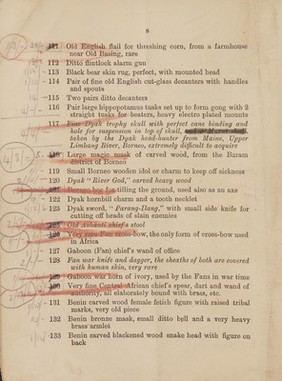 8
111 Old English flail for threshing corn, from a farmhouse
near Old Basing, rare
112 Ditto flintlock alarm gun
113 Black bear skin rug, perfect, with mounted head
114 Pair of fine old English cut-glass decanters with handles
and spouts
115 Two pairs ditto decanters
116 Pair large hippopotamus tusks set up to form gong with 2
straight tusks for beaters, heavy electro plated mounts
117 Fine Dyak trophy skull with perfect cane binding and
hole for suspension in top of skull,
taken by the Dyak head-hunter from Maine, Upper
Limbang River, Borneo, extremely difficult to acquire
118 Large magic mask of carved wood, from the Baram
district of Borneo
119 Small Borneo wooden idol or charm to keep off sickness
120 Dyak "River God," carved heavy wood
121 Borneo hoe for tilling the ground, used also as an axe
122 Dyak hornbill charm and a tooth necklet
123 Dyak sword, "Parang-Ilang," with small side knife for
cutting off heads of slain enemies
Old Ashanti chief's stool
Very rare Fan cross-bow, the only form of cross-bow used
in Africa
127 Gaboon (Fan) chief's wand of office
128 Fan war knife and dagger, the sheaths of both are covered
with human skin, very rare
129 Gaboon war horn of ivory, used by the Fans in war time
130 Very fine Central African chief's spear, dart and wand of
authority, all elaborately bound with brass, etc.
131 Benin carved wood female fetish figure with raised tribal
marks, very old piece
132 Benin bronze mask, small ditto bell and a very heavy
brass armlet
133 Benin carved blackened wood snake head with figure on
back